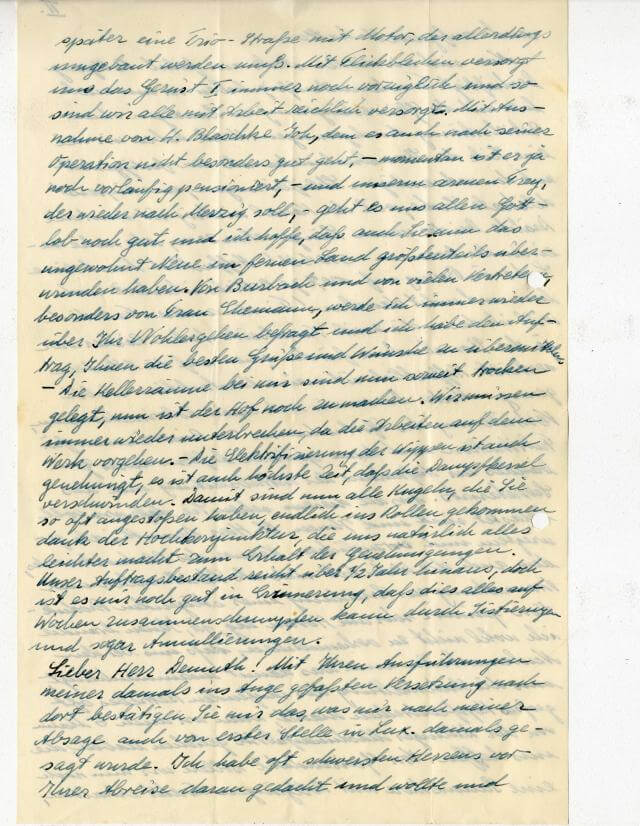 II.
später eine Trio-Straße mit Motor, das allerdings
umgebaut werden muß. Mit Fleckblechen versorgt
uns das Gerüst I immer noch vorzüglich und so
sind wir alle mit Arbeit reichlich versorgt. Mit Aus-
nahme von H. Blaschke Joh, dem es auch nach seiner
Operation nicht besonders gut geht, – momentan ist er ja
noch vorläufig pensioniert, – und unserm armen Frey,
der wieder nach Merzig soll, – geht es uns allen Gott-
lob noch gut und ich hoffe, daß auch Sie nun das
ungewohnt Neue im fernen Land großenteils über-
wunden haben. Von Burbach und von vielen Vertretern,
besonders von Frau Ehemann, werde ich immer wieder
über Ihr Wohlergehen befragt und ich habe den Auf-
trag, Ihnen die besten Grüße und Wünsche zu übermitteln
– Die Kellerräume bei mir sind nun soweit trocken
gelegt, nun ist der Hof noch zu machen. Wir müssen
immer wieder unterbrechen, da die Arbeiten auf dem
Werk vorgehen. – Die Elektrifizierung der Wippen ist auch
genehmigt, es ist auch höchste Zeit, daß die Dampfkessel
verschwinden. Damit sind nun alle Kugeln, die Sie
so oft angestoßen haben, endlich ins Rollen gekommen
dank der Hochkonjunktur, die uns natürlich alles
leichter macht zum Erhalt der Genehmigungen.
Unser Auftragsbestand reicht über 1/2 Jahr hinaus, doch
ist es mir noch gut in Erinnerung, daß dies alles auf
Wochen zusammenschrumpfen kann durch Sistierungen
und sogar Annullierungen.
Lieber Herr Demuth! Mit Ihren Ausführungen
meiner damals ins Auge gefaßten Versetzung nach
dort bestätigen Sie mir das, was mir nach meiner
Absage auch von erster Stelle in Lux. damals ge-
sagt wurde. Ich habe oft schwersten Herzens vor
Ihrer Abreise daran gedacht und wollte und